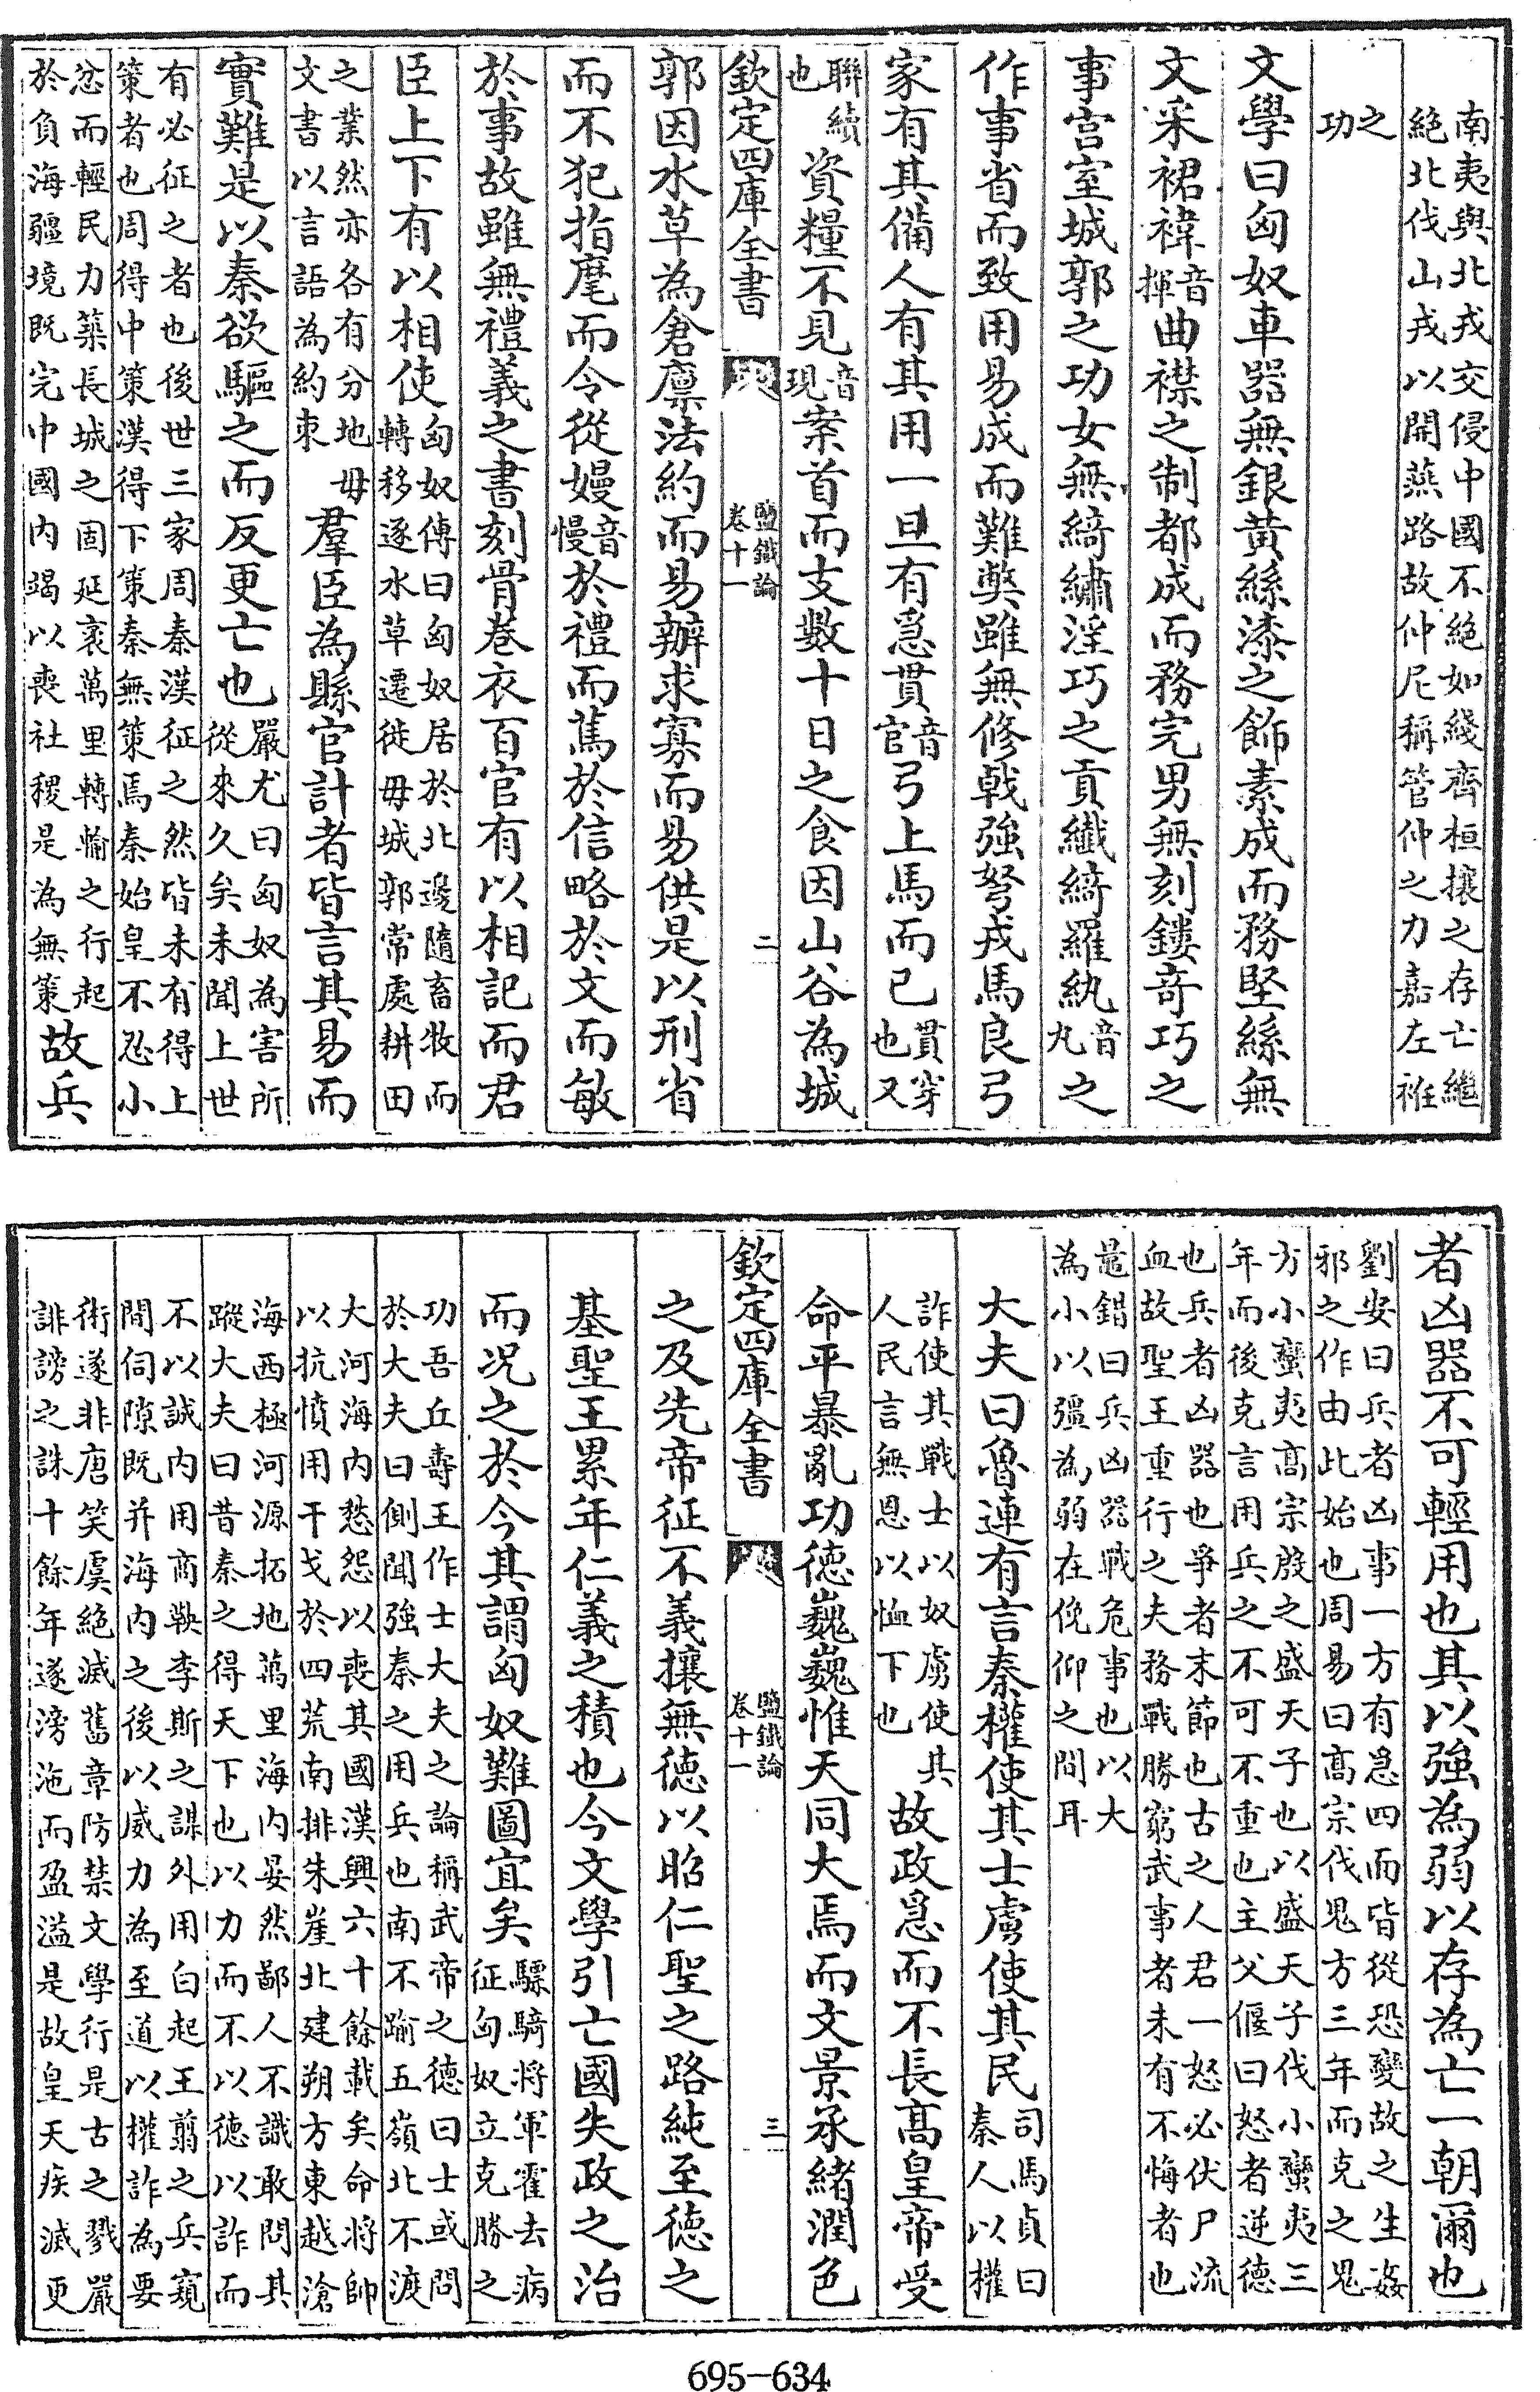 南夷與北戎交侵中國不絶如綫齊桓攘之存亡繼
絶北伐山戎以開燕路故仲尼稱管仲之力嘉左袵
之
功
文學曰匈奴車器無銀黃絲漆之飾素成而務堅絲無
文采裙褘音揮曲襟之制都成而務完男無刻鏤奇巧之
事宫室城郭之功女無綺繡淫巧之貢纎綺羅紈音丸之
作事省而致用易成而難弊雖無修戟強弩戎馬良弓
家有其備人有其用一旦有急貫音官弓上馬而已貫穿也又
聯續也資糧不見音現案首而支數十日之食因山谷為城
欽定四庫全書 鹽鐵論卷十一 二
郭因水草為倉廩法約而易辦求寡而易供是以刑省
而不犯指麾而令從嫚音慢於禮而篤於信略於文而敏
於事故雖無禮義之書刻骨卷衣百官有以相記而君
臣上下有以相使匈奴傳曰匈奴居於北邊隨畜牧而轉移逐水草遷徙毋城郭常處耕田
之業然亦各有分地毋文書以言語為約束羣臣為縣官計者皆言其易而
實難是以秦欲驅之而反更亡也嚴尤曰匈奴為害所從來久矣未聞上世
有必征之者也後世三家周秦漢征之然皆未有得上
策者也周得中策漢得下策秦無策焉秦始皇不忍小
忿而輕民力築長城之固延袤萬里轉輸之行起於負海疆境既完中國内竭以喪社稷是為無策故兵
者凶器不可輕用也其以強為弱以存為亡一朝爾也
劉安曰兵者凶事一方有急四面皆從恐變故之生姦
邪之作由此始也周易曰高宗伐鬼方三年而克之鬼
方小蠻夷高宗殷之盛天子也以盛天子伐小蠻夷三
年而後克言用兵之不可不重也主父偃曰怒者逆德
也兵者凶器也爭者末節也古之人君一怒必伏尸流
血故聖王重行之夫務戰勝窮武事者未有不悔者也
鼂錯曰兵凶器戰危事也以大
為小以彊為弱在俛仰之間耳
大夫曰魯連有言秦權使其士虜使其民司馬貞曰秦人以權
詐使其戰士以奴虜使其人民言無恩以恤下也故政急而不長高皇帝受
命平暴亂功徳巍巍惟天同大焉而文景承緒潤色
欽定四庫全書 鹽鐵論卷十一 三
之及先帝征不義攘無徳以昭仁聖之路純至徳之
基聖王累年仁義之積也今文學引亡國失政之治
而况之於今其謂匈奴難圖宜矣驃騎將軍霍去病征匈奴立克勝之
功吾丘壽王作士大夫之論稱武帝之德曰士或問
於大夫曰側聞強秦之用兵也南不踰五嶺北不渡
大河海内愁怨以喪其國漢興六十餘載矣命將帥
以抗憤用干戈於四荒南排朱崖北建朔方東越滄
海西極河源拓地萬里海内晏然鄙人不識敢問其
蹤大夫曰昔秦之得天下也以力而不以德以詐而
不以誠内用商鞅李斯之謀外用白起王翦之兵窺
間伺隙既并海内之後以威力為至道以權詐為要
術遂非唐笑虞絶滅舊章防禁文學行是古之戮嚴
誹謗之誅十餘年遂滂沲而盈溢是故皇天疾滅更
695-634